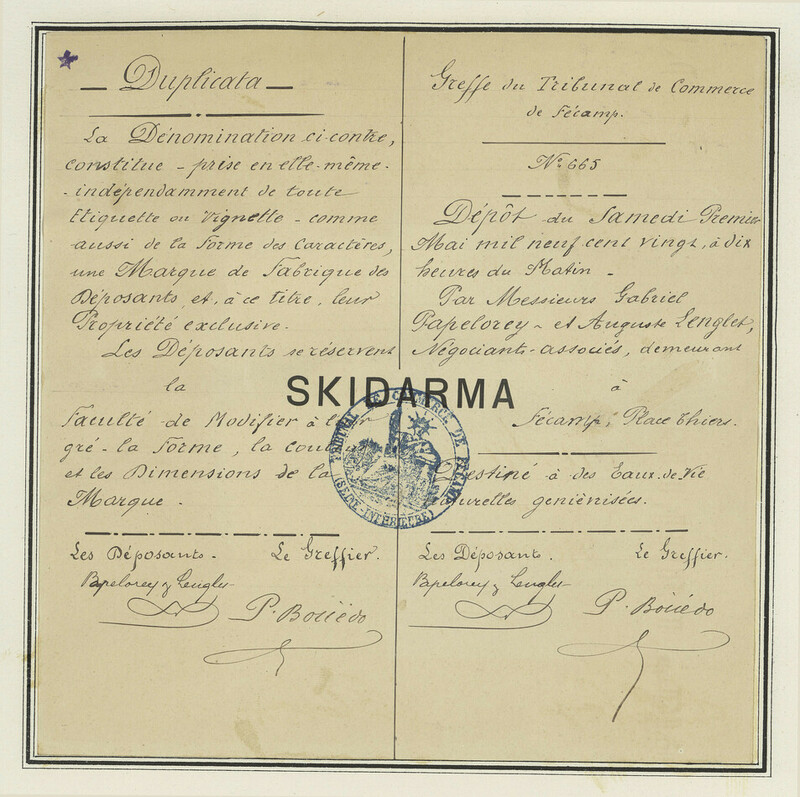 Duplicata
La Dénomination ci-contre,
constitue - prise en elle-même -
- indépendamment de toute
Etiquette ou Vignette - comme
aussi de la Forme des Caractères,
une Marque de Fabrique des
Déposants et, à ce titre, leur
Propriété exclusive.
Les Déposants se réservent
la
Faculté de Modifier à leur
gré - la Forme, la coul
et les Dimensions de la
Marque.
Les Déposants.
Le Greffier.
Papelorey & Lenglet
P. Boüëdo
Greffe du Tribunal de Commerce
de Fécamp.
No 665
Dépôt du Samedi Premier
Mai mil neuf cent vingt, à dix
heures du Matin -
Par Messieurs Gabriel
Papelorey - et Auguste Lenglet,
Négociants-associés, demeurant
à
Fécamp, Place Thiers.
Destiné à des Eaux-de-Vie
naturelles geniènisées.
Les Déposants.
Le Greffier.
Papelorey & Lenglet
P. Boüëdo
SKIDARMA
TRIBUNAL DE COMMERCE DE FÉCAMP
(SEINE-INFÉRIEURE)